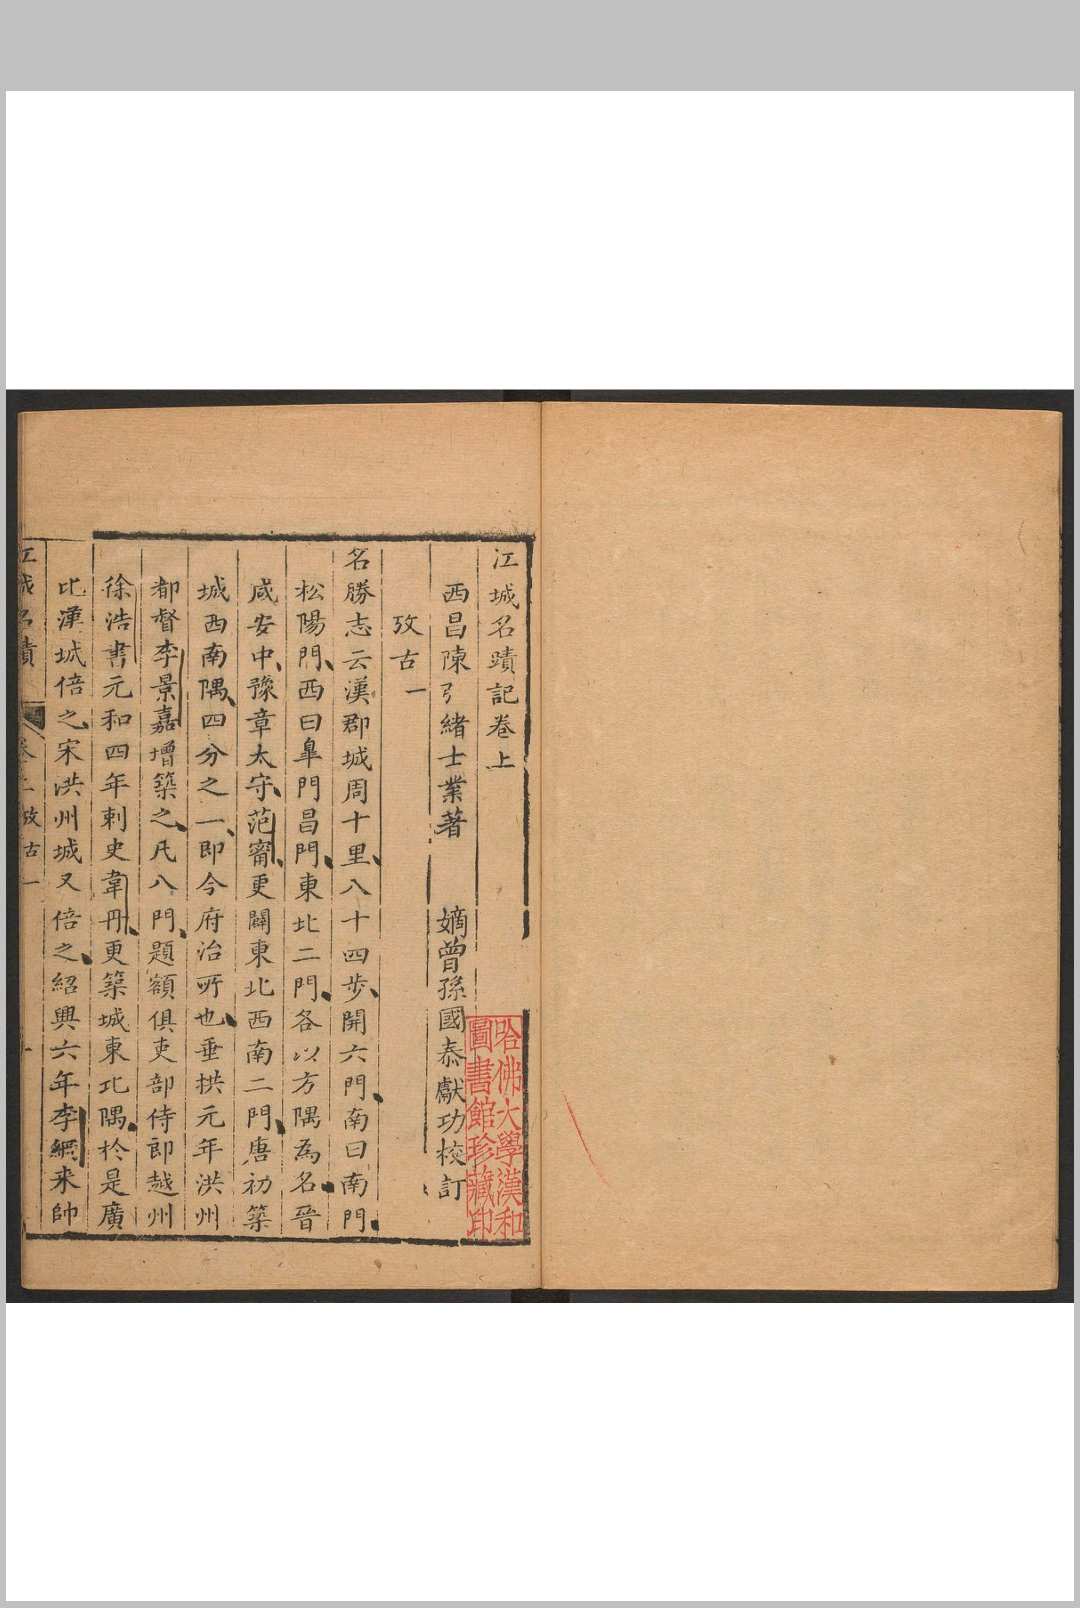 江城名蹟記卷上
西昌陳弘緒士業著 嫡曾孫國泰獻功校訂
攷古一
名勝志云漢郡城周十里八十四步開六門南曰南門
松陽門西曰臯門昌門東北二門各以方隅為名晉
咸安中豫章太守范甯更闢東北西南二門唐初築
城西南隅四分之一即今府治所也垂拱元年洪州
都督李景嘉增築之凡八門題額俱吏部侍郎越州
徐浩書元和四年刺史韋丹更築城東北隅於是廣
比漢城倍之宋洪州城又倍之紹興六年李綱来帥
江城名蹟 卷上攷古一
哈佛大學漢和
圖書館珍藏印